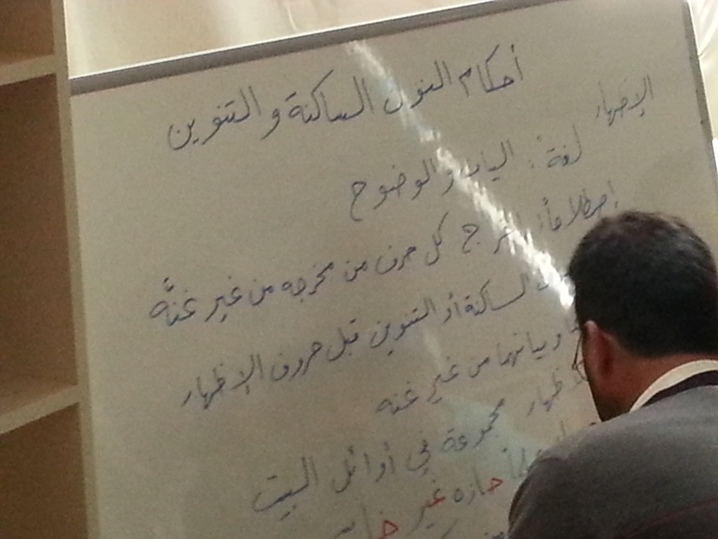 أحكام النون الساكنة والتنوين
الإظهار
لغة: البيان والوضوح
إصطلاحاً: إخراج كل حرف من مخرجه من غير غنَّه
الساكنة أو التنوين قبل حروف الإظهار
وبيانهما من غير غنه
مجموعة في أوائل البيت
حازه غير